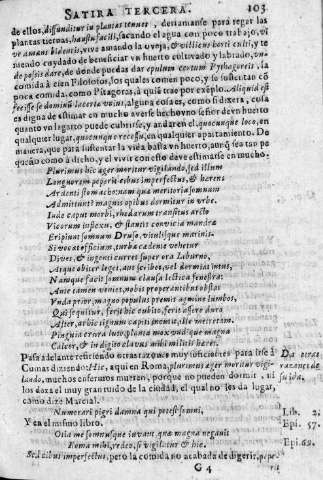 SATIRA TERCERA. 103
de ellos, diffunditur in plantas tenues, deriamanse para regar las
plantas tiernas, haustu facili, sacando el agua con poco trabajo, vi
ve amans bidentis, vive amando la oveja, & villicus horti culti, y te
niendo cuydado de beneficiar vn huerto cultivado y labrado, vn
de possis dare, de donde puedas dar epulum centum Pythagoreis, la
comida à cien Filosofos, los quales comen poco, y se sustentan cō
poca comida, como Pitagoras, à quien trae por exemplo. Aliquid est
fecisse se dominū lacertæ vnius, alguna cosa es, como si dixera, cosa
es digna de estimar en mucho averse hecho vno señor de vn huerto
quanto vn lagarto puede cubrirse, y andar en el, quocunque loco, en
qualquier lugar, quocunque recessu, en qualquier apartamiento. De
manera, que para sustentar la vida basta vn huerto, aunq̃ sea tan pe
queño como à dicho, y el vivir con esso deve estimarse en mucho.
Plurimus hic æger moritur vigilando, sed illum
Languorem peperit cibus imperfectus, & hærens
Ardenti stomacho: nam quæ meritoria somnum
Admittunt? magnis opibus dormitur in vrbe.
Inde caput morbi, rhedarum transitus arcto
Vicorum inflexu, & stantis convicia mandræ
Eripiunt somnum Druso, vitulisque marinis.
Si vocat officium, turba cedente vehetur
Dives, & ingenti curret super ora Liburno,
Atque obiter leget, aut scribet, vel dormiet intus,
Namque facit somnum clausa lectica fenestra:
Ante tamen veniet, nobis properantibus obstat
Vnda prior, magno populus premit agmine lumbos,
Qui sequitur, ferit hic cubito, ferit assere duro
Alter, at hic tignum capiti incutit, ille metretam.
Pinguia crura luto, planta mox vndique magna
Calcor, & in digito clavus mihi militis hæret.
Passa adelante refiriendo otras razones muy suficientes para irse à
Cumas diziendo: Hic, aqui en Roma, plurimus æger moritur vigi-
lando, muchos enfermos mueren, porque no pueden dormir, ni
los dexa el muy gran ruido de la ciudad, el qual no les da lugar,
como dize Marcial.
Da otras
razones de
su ida.
Numerari pigri damna qui potest somni,
Lib. 2.
Y en el mismo libro.
Epi. 57.
Otia me somnusque iuvant, quæ magna negavit
Roma mihi, redeo, si vigilatur & hic.
Epi. 68.
Sed cibus imperfectus, pero la comida no acabada de digerir, pepe
G 4